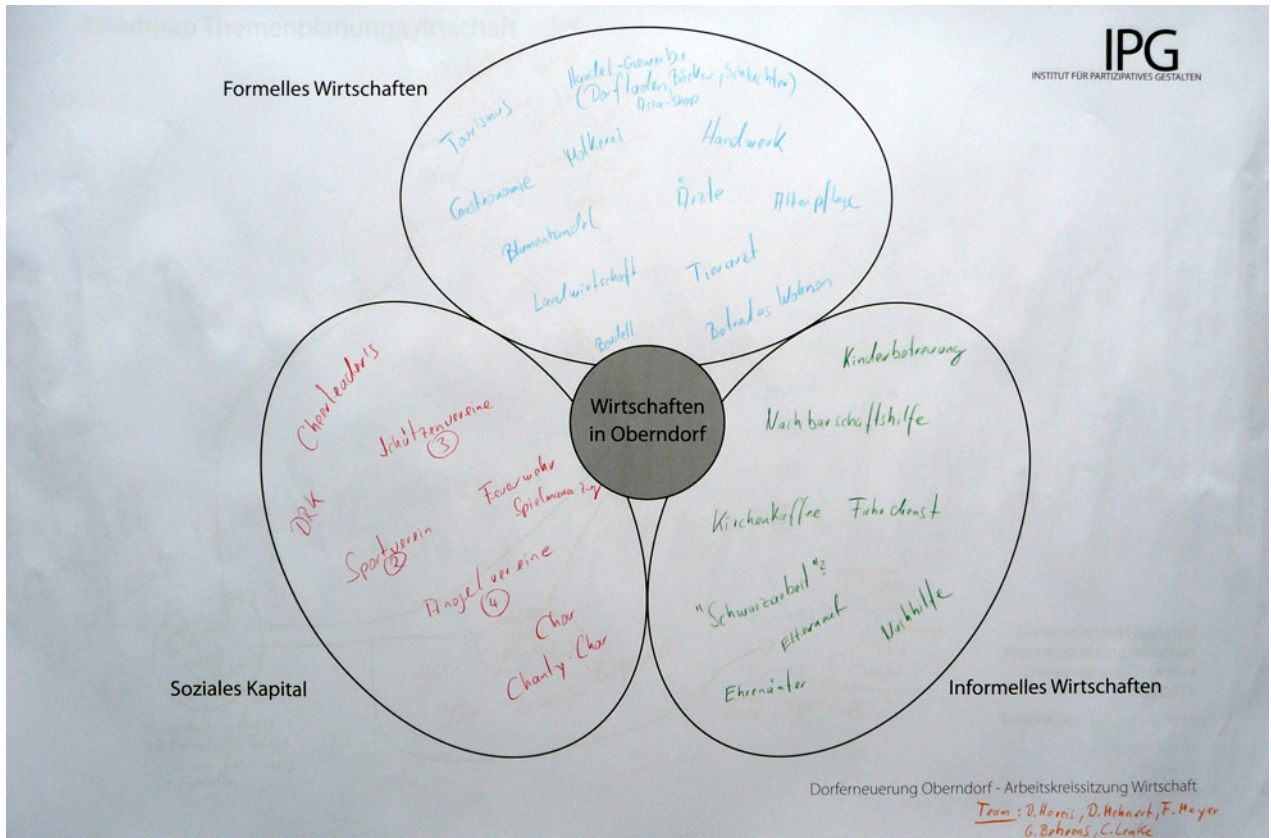 IPG
INSTITUT FÜR PARTIZIPATIVES GESTALTEN
Formelles Wirtschaften
Handel-Gewerbe
(Dorfladen, Bäcker, Schlachter)
Asia-Shop
Tourismus
Molkerei
Handwerk
Gastronomie
Ärzte
Altenpflege
Blumenhandel
Landwirtschaft
Tierarzt
Bordell
Betreutes Wohnen
Wirtschaften
in Oberndorf
Soziales Kapital
Cheerleader's
Schützenvereine
3
DRK
Feuerwehr
Spielmannszug
Sportverein
2
Angelvereine
4
Chor
Chanty-Chor
Informelles Wirtschaften
Kinderbetreuung
Nachbarschaftshilfe
Kirchenkaffee
Fahrdienst
"Schwarzarbeit"?
Nachhilfe
Ehrenämter
Dorferneuerung Oberndorf - Arbeitskreissitzung Wirtschaft
Team: D. Mehnert, F. Meyer
G. Behrens, C. Lemke